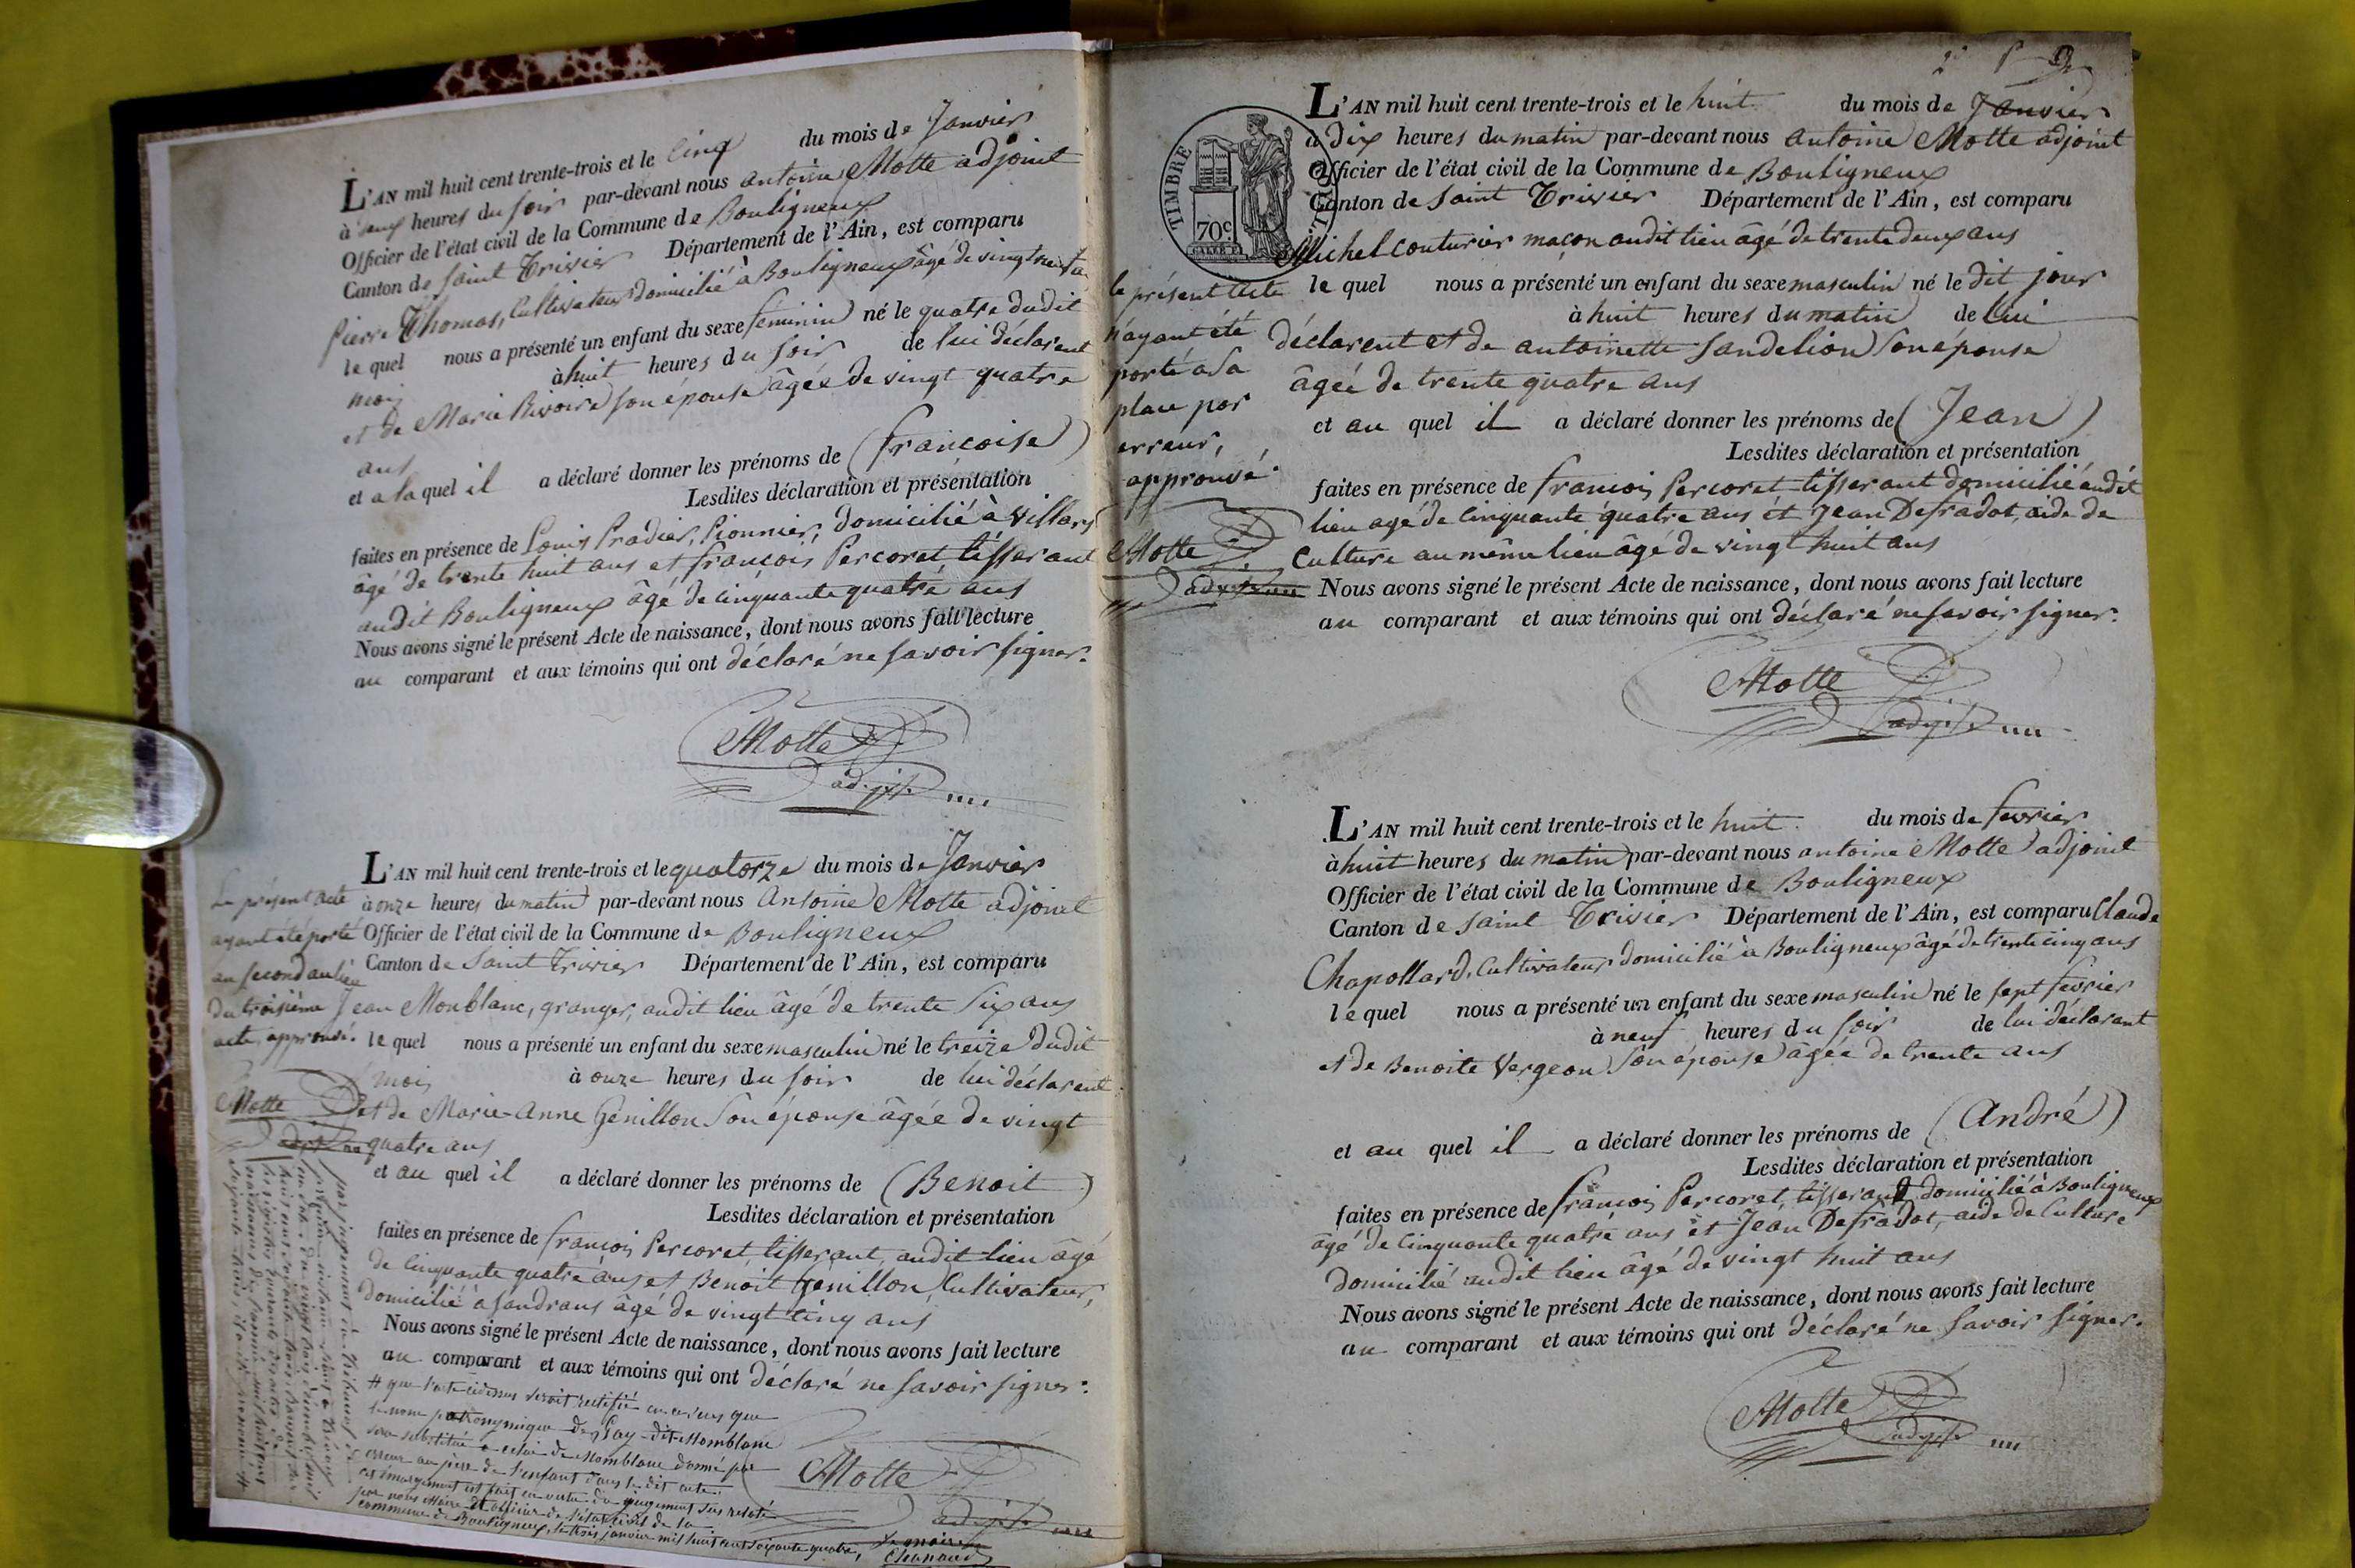 L'AN mil huit cent trente-trois et le cinq du mois de Janvier
à heures du soir par-devant nous antoine Motte adjoint
Officier de l'état civil de la Commune de Bouligneux
Canton de saint Trivier Département de l'Ain, est comparu
pierre Thomas, Cultivateur domicilié à Bouligneux âgé de vingt
le quel nous a présenté un enfant du sexe féminin né le quatre dudit
mois à huit heures du soir de lui déclarent
et de Marie Rivoire son épouse âgée de vingt quatre
ans
et a la quel il a déclaré donner les prénoms de (francoise)
Lesdites déclaration et présentation
faites en présence de Louis Pradier, Pionnier, domicilié à Villars
âgé de trente huit ans et françois Percoret tisserant
audit Bouligneux âgé de cinquante quatre ans
Nous avons signé le présent Acte de naissance, dont nous avons fait lecture
au comparant et aux témoins qui ont déclaré ne savoir signer.
Motte
adjt
L'AN mil huit cent trente-trois et le quatorze du mois de Janvier
à onze heures du matin par-devant nous Antoine Motte adjoint
Officier de l'état civil de la Commune de Bouligneux
Canton de saint Trivier Département de l'Ain, est comparu
Jean Monblanc, granger, audit lieu âgé de trente six ans
le quel nous a présenté un enfant du sexe masculin né le treize dudit
mois à onze heures du soir de lui déclarent
et de Marie-Anne Genillon son épouse âgée de vingt
quatre ans
et au quel il a déclaré donner les prénoms de (Benoit)
Lesdites déclaration et présentation
faites en présence de françois Percoret, tisserant, audit lieu âgé
de cinquante quatre ans et Benoit Genillon, Cultivateur,
domicilié a sandrans âgé de vingt cinq ans
Nous avons signé le présent Acte de naissance, dont nous avons fait lecture
au comparant et aux témoins qui ont déclaré ne savoir signer.
Motte
adjt
Le présent acte
ayant été porté
au second au lieu
du troisième
acte, approuvé.
Motte
adjt
par jugement du tribunal
# que l'acte cidessus serait rectifié en ce sens que
le nom patronymique de Gay-dit-Momblanc
sera substitué a celui de Momblanc donné par
erreur au père de l'enfant dans le dit acte.
cet émargement est fait en vertu du jugement sus relaté
par nous Maire et officier de l'état civil de la
commune de Bouligneux, le trois janvier mil huit cent soixante quatre,
Le maire
2
L'AN mil huit cent trente-trois et le huit du mois de Janvier
à dix heures du matin par-devant nous antoine Motte adjoint
Officier de l'état civil de la Commune de Bouligneux
Canton de saint Trivier Département de l'Ain, est comparu
Michel couturier maçon audit lieu âgé de trente deux ans
le quel nous a présenté un enfant du sexe masculin né le dit jour
à huit heures du matin de lui
déclarent et de antoinette Sandelion son épouse
âgée de trente quatre ans
et au quel il a déclaré donner les prénoms de (Jean)
Lesdites déclaration et présentation
faites en présence de françois Percoret tisserant domicilié audit
lieu agé de cinquante quatre ans et Jean Defradat, aide de
Culture au même lieu âgé de vingt huit ans
Nous avons signé le présent Acte de naissance, dont nous avons fait lecture
au comparant et aux témoins qui ont déclaré ne savoir signer.
Motte
adjt
TIMBRE
70c
le présent acte
n'ayant été
porté a sa
place par
erreur,
approuvé.
Motte
adjt
L'AN mil huit cent trente-trois et le huit du mois de fevrier
à huit heures du matin par-devant nous antoine Motte adjoint
Officier de l'état civil de la Commune de Bouligneux
Canton de saint Trivier Département de l'Ain, est comparu Claude
Chapollard, Cultivateur domicilié à Bouligneux âgé de trente cinq ans
le quel nous a présenté un enfant du sexe masculin né le sept fevrier
à neuf heures du soir de lui déclarant
et de Benoite Vergeon son épouse âgée de trente ans
et au quel il a déclaré donner les prénoms de (André)
Lesdites déclaration et présentation
faites en présence de françois Percoret, tisserant domicilié à Bouligneux
âgé de cinquante quatre ans et Jean Defradat, aide de Culture
domicilié audit lieu âgé de vingt huit ans
Nous avons signé le présent Acte de naissance, dont nous avons fait lecture
au comparant et aux témoins qui ont déclaré ne savoir signer.
Motte
adjt